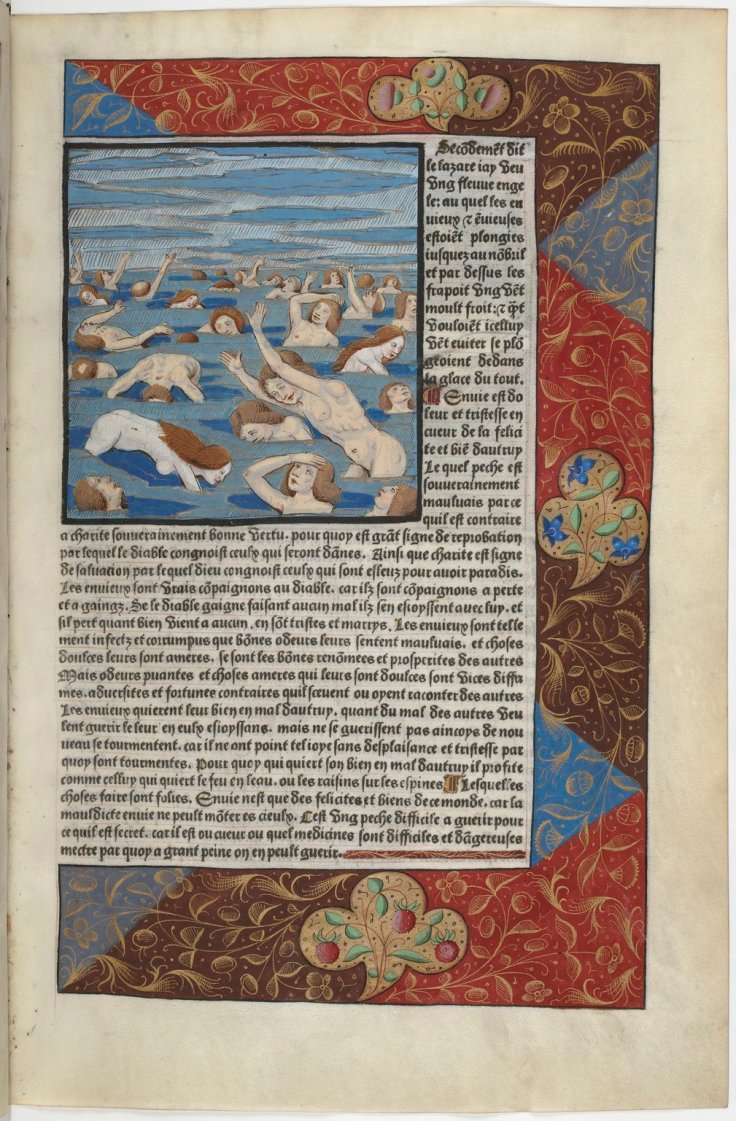 Secõdemẽt dit
le lazare iay veu
vng fleuue enge
le: au quel les en
uieux ⁊ ẽuieuses
estoiẽt plongies
iusquez au nõbril
et par dessus les
frapoit vng vẽt
moult froit: ⁊ qñt
vouloiẽt icelluy
vẽt euiter se plõ
geoient dedans
la glace du tout.
Enuie est do
leur et tristesse en
cueur de la felici
te et biẽ dautruy
Le quel peche est
souuerainement
mauluais parce
quil est contraire
a charite souuerainement bonne vertu. pour quoy est grãt signe de reprobation
por lequel le diable congnoist ceulx qui seront dãnes. Ainsi que charite est signe
de saluation par lequel dieu congnoist ceulx qui sont esleuz pour auoir paradis.
Les enuieux sont vrais cõpaignons au diable. car ilz sont cõpaignons a perte
et a gaingz. Se le diable gaigne faisant aucun mal ilz sen esioyssent auec luy. et
sil pert quant bien vient a aucun. en sõt tristes et marrys. Les enuieux sont telle
ment infectz et corrumpus que bõnes odeurs leurs sentent mauluais. et choses
doulces leurs sont ameres. se sont les bõnes renõmees et prosperites des autres
Mais odeurs puantes et choses ameres qui leurs sont doulces sont vices diffa
mes. aduersites et fortunes contraires quil scœuent ou oyent raconter des autres
Les enuieux quierent leur bien en mal dautruy. quant du mal des autres veu
lent guerir le leur en eulx esioyssans. mais ne se guerissent pas aincoys de nou
ueau se tourmentent. car il ne ont point tel ioye sans desplaisance et tristesse par
quoy sont tourmentes. Pour quoy qui quiert son bien en mal dautruy il profite
comme celluy qui quiert le feu en leau. ou les raisins sur les espines. Lesquelles
choses faire sont folies. Enuie nest que des felicites et biens de ce monde. car la
mauldicte enuie ne peult mõter es cieulx. Cest vng peche difficile a guerir pour
ce quil est secret. car il est ou cueur ou quel medicines sont difficiles et dãgereuses
mectre par quoy a grant peine on en peult guerir.